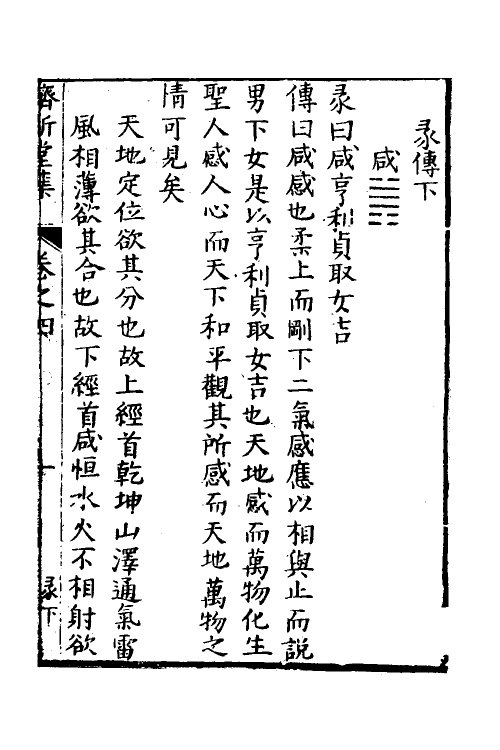 彖傳下
咸䷞
彖曰咸亨利貞取女吉
傳曰咸感也柔上而剛下二氣感應以相與止而說
男下女是以亨利貞取女吉也天地感而萬物化生
聖人感人心而天下和平觀其所感而天地萬物之
情可見矣
天地定位欲其分也故上經首乾坤山澤通氣雷
風相薄欲其合也故下經首咸恒水火不相射欲
齊所堂集
卷之四
一
彖下